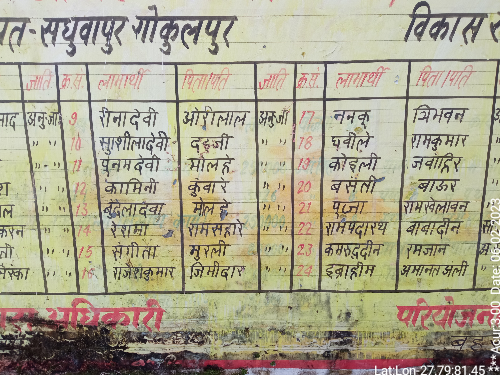 यत-सधुवापुर गोकुलपुर विकास
जाति क्र.सं लाभार्थी पिता/पति जाति क्र.सं लाभार्थी पिता/पति
साद अनु०जा० 9 रीनादेवी ओरीलाल अनु०जा० 17 ननकू त्रिभवन
" " 10 सुशीलादेवी दइजी " " 18 घसीले रामकुमार
" " 11 पूनमदेवी मौलहे " " 19 कोइली जवाहिर
" " 12 कामिनी कुवार " " 20 बसंली बाऊर
" " 13 बुदेलादेवी मोलहे " " 21 पूज्जा रामखेलावन
" " 14 रेशमा रामसहारे " " 22 रामपदारथ बाबादीन
" " 15 संगीता मुरली " " 23 कमरुद्दीन रमजान
" " 16 राजेशकुमार जिमीदार " " 24 इब्राहीम अमानत अली
अधिकारी परियोजना
Lat:Lon-27.79:81.45